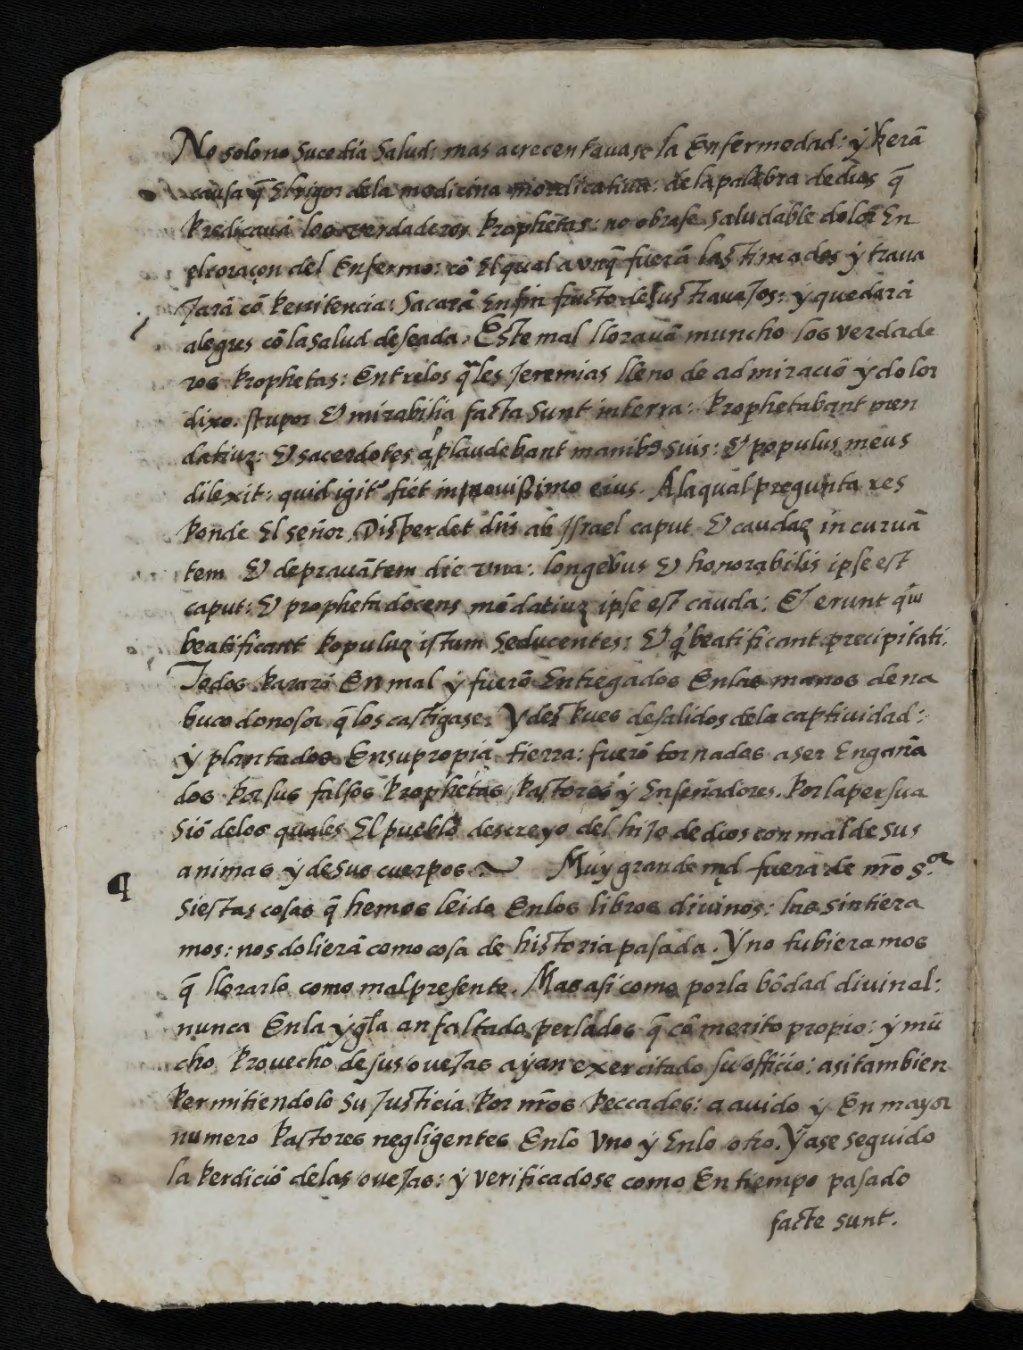 No solo no sucedia salud: mas acrecentauase la Enfermedad: ÿ herã
causa q̃ El rigor dela medicina mordicatiua: de la palabra de dios q̃
Predicauã los verdaderos Prophetas: no obrase saludable dolor En
el coraçon del Enfermo: cõ El qual aunq̃ fuerã lastimados ÿ traua
Jarã cõ Penitencia: Sacarã En fin fructo de sus trauaJos: ÿ quedarã
alegres cõ la salud deseada. Este mal llorauã muncho los verdade
ros Prophetas: Entre los q̃les Jeremias lleno de admiraciõ ÿ dolor
dixo. stupor & mirabilia facta sunt in terra: Prophetabant men
datiuz: & sacerdotes aplaudebant manibꝰ suis: & populus meus
dilexit: quid igit᷑ fiet in nouissimo eius. A la qual pregunta res
Ponde El señor. Disperdet dñs ab Jsrael caput & caudaz incuruã
tem & deprauãtem die vna: longebus & honorabilis ipse est
caput: & propheta docens mẽdatiuz ipse est cauda: & erunt qui
beatificant Populuz istum Seducentes: & q beatificant precipitati.
Todos Pararõ En mal ÿ fuerõ Entregados En las manos de na
bucodonosor q̃ los castigase: Y des Pues de salidos dela captiuidad:
ÿ plantados En su propia tierra: fuerõ tornados a ser Engaña
dos Por sus falsos Prophetas, Pastores ÿ Enseñadores. Por la persua
siõ delos quales El pueblo descreyo del hiJo de dios con mal de sus
animas ÿ de sus cuerpos ~ Muÿ grande md fuera de nr̃o S.ᵒʳ
¶ Si estas cosas q̃ hemos leido En los libros diuinos: las sintiera
mos: nos dolierã como cosa de historia pasada. Y no tubieramos
q̃ llorarlo como mal presente. Mas asi como por la bõdad diuinal:
nunca En la ÿgl̃a an faltado perlados q̃ cõ merito propio: ÿ mũ
cho Prouecho de sus oueJas aÿan exercitado su officio: asi tambien
Permitiendolo su Justicia Por nr̃os Peccados: a auido ÿ En mayor
numero Pastores negligentes En lo Vno ÿ En lo otro. Ÿ ase seguido
la Perdiciõ delas oueJas: ÿ verificadose como En tiempo pasado
facte sunt.